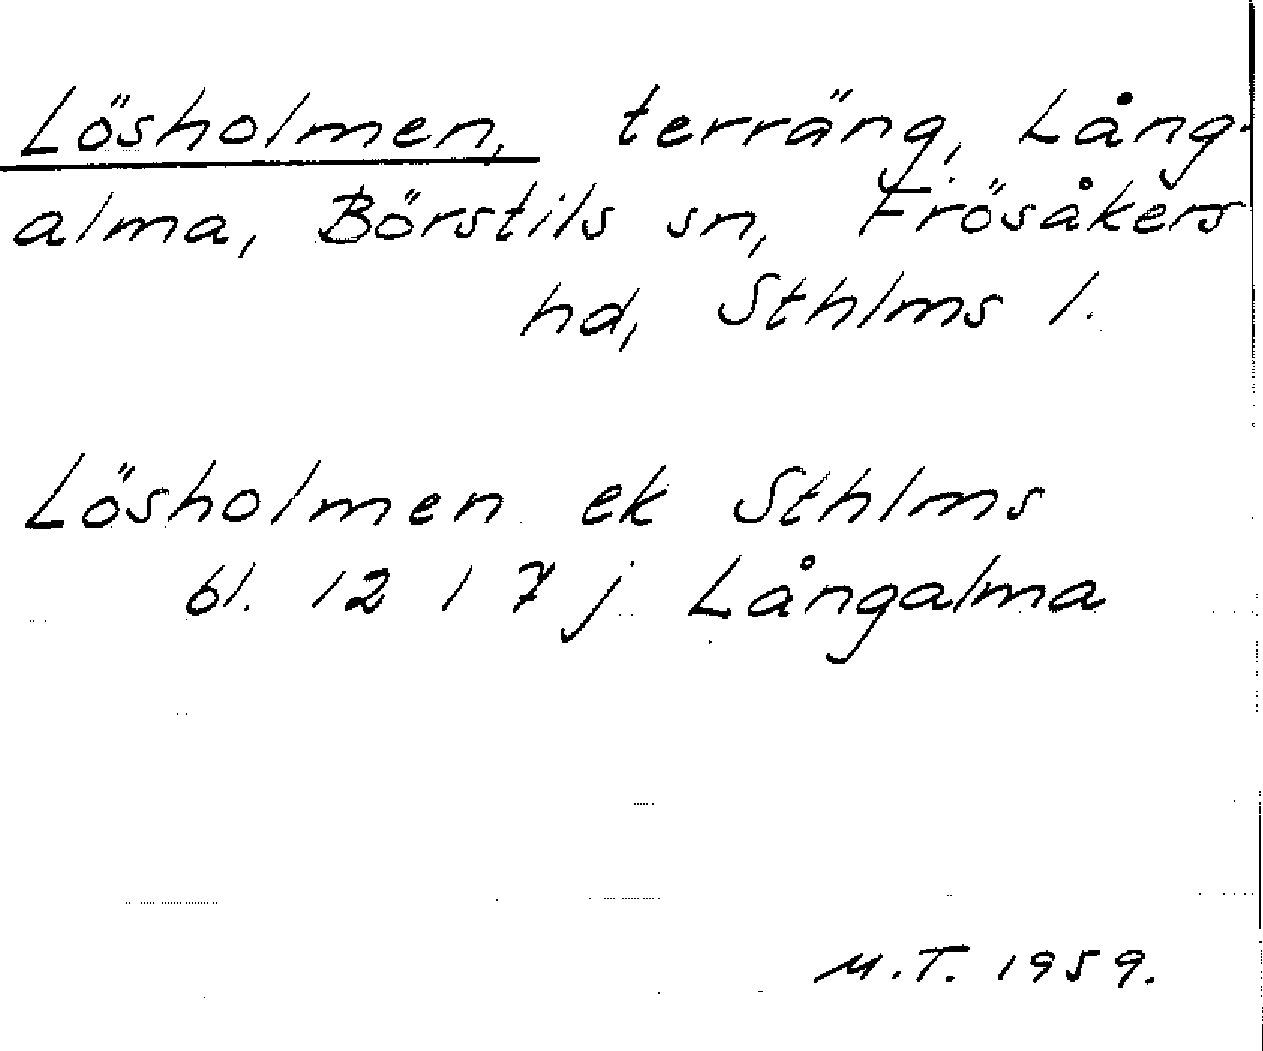 Lösholmen, terräng, Lång-
alma, Börstils sn, Frösåkers
hd, Sthlms l.
Lösholmen ek Sthlms
bl. 12 I 7 j Långalma
M.T. 1959.